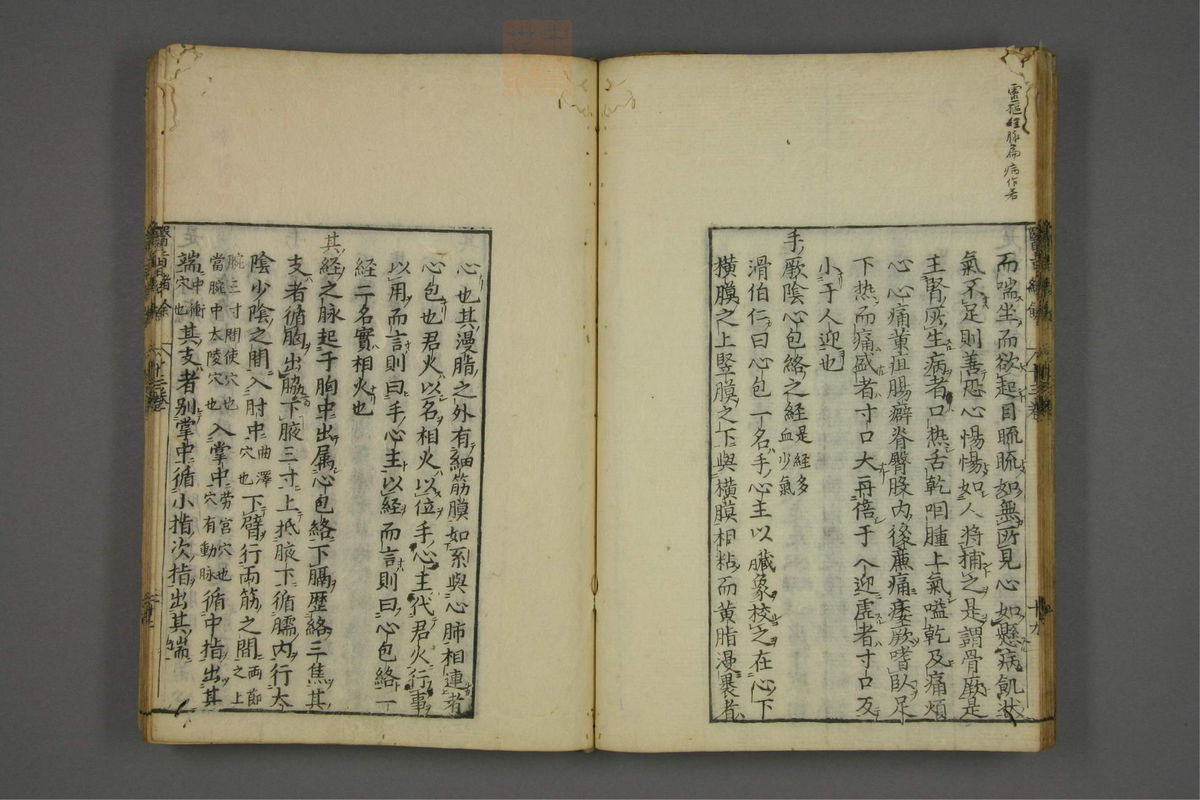 靈樞経脉篇病作若
而喘坐而欲起目䀮䀮如無所見心如懸病飢状
氣不足則善恐心惕惕如人将捕之是謂骨厥是
主腎所生病者口热舌乾咽腫上氣嗌乾及痛煩
心心痛黄疸腸癖脊臀股内後廉痛痿厥嗜臥足
下热而痛盛者寸口大再倍于人迎虚者寸口反
小于人迎也
手厥陰心包絡之経是経多血少氣
滑伯仁曰心包一名手心主以臓象校之在心下
横膜之上竪膜之下與横膜相粘而黄脂漫裹者
心也其漫脂之外有細筋膜如系與心肺相連者
心包也君火以名相火以位手心主代君火行事
以用而言則曰手心主以経而言則曰心包絡一
経二名實相火也
其経之脉起于胸中出属心包絡下膈歴絡三焦其
支者循胸出脇下腋三寸上抵腋下循臑内行太
陰少陰之間入肘中曲澤穴也下臂行両筋之間両筋之上
腕三寸間使穴也當腕中太陵穴也入掌中勞宮穴也穴有動脉循中指出其
端中衝穴也其支者别掌中循小指次指出其端